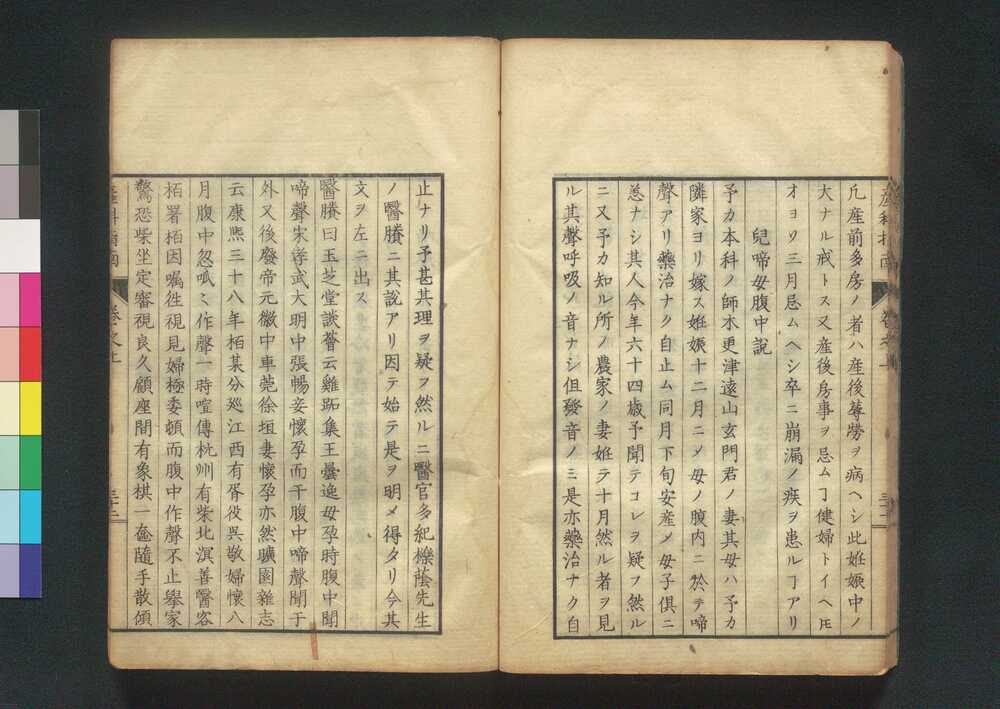 産科指南　巻之上　三十二
凢産前多房ノ者ハ産後蓐勞ヲ病ヘシ此姙娠中ノ
大ナル戒トス又産後房事ヲ忌ムヿ健婦トイヘ𪜈
オヨソ三月忌ムヘシ卒ニ崩漏ノ疾ヲ患ルヿアリ
兒啼母腹中說
予カ本科ノ師木更津遠山玄門君ノ妻其母ハ予カ
隣家ヨリ嫁ス姙娠十二月ニ〆母ノ腹内ニ於テ啼
聲アリ藥治ナク自止ム同月下旬安産〆母子俱ニ
恙ナシ其人今年六十四歳予聞テコレヲ疑フ然ル
ニ又予カ知ル所ノ農家ノ妻姙テ十月然ル者ヲ見
ル其聲呼吸ノ音ナシ但發音ノミ是亦藥治ナク自
止ナリ予甚其理ヲ疑フ然ルニ醫官多紀櫟蔭先生
ノ醫賸ニ其說アリ因テ始テ是ヲ明メ得タリ今其
文ヲ左ニ出ス
醫賸曰玉芝堂談薈云雞跖集王曇逸母孕時腹中聞
啼聲宋孝武大明中張暢妾懷孕而于腹中啼聲聞于
外又後廢帝元徽中車莞徐垣妻懷孕亦然曠園雜志
云康熙三十八年栢某分廵江西有胥役吳敬婦懷八
月腹中忽呱〻作聲一時喧傳杭州有柴北溟善醫客
栢署栢因囑徃視見婦極委頓而腹中作聲不止擧家
驚恐柴坐定審視良久顧座間有象棋一奩隨手散傾
産科指南　巻之上